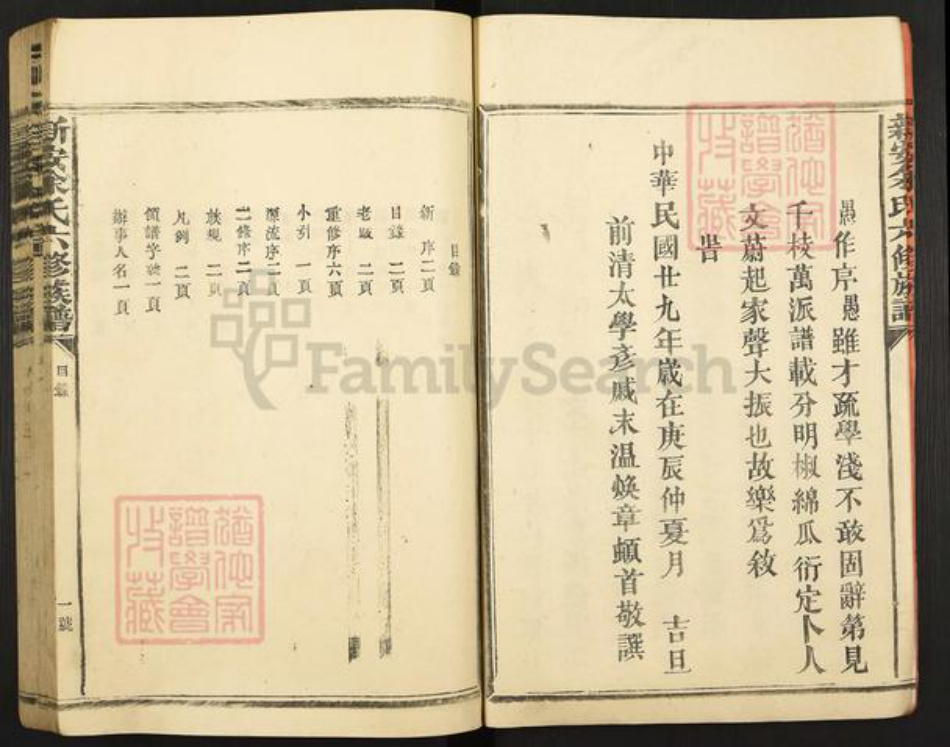 愚作序愚雖才疏學淺不敢固辭第見
千枝萬派譜載分明椒綿瓜衍定卜人
文蔚起家聲大振也故樂爲敘
旹
中華民國廿九年歲在庚辰仲夏月 吉旦
前清太學彥戚末温煥章頓首敬譔
新安余氏六修族譜
目錄
新序二頁
目錄 二頁
老跋 二頁
重修序六頁
小引 一頁
源流序二頁
二修序二頁
族規 二頁
凡例 二頁
領譜字號一頁
辦事人名一頁
新安余氏六修族譜
目錄
一號
譜學會
收藏
譜學會
收藏
FamilySearch